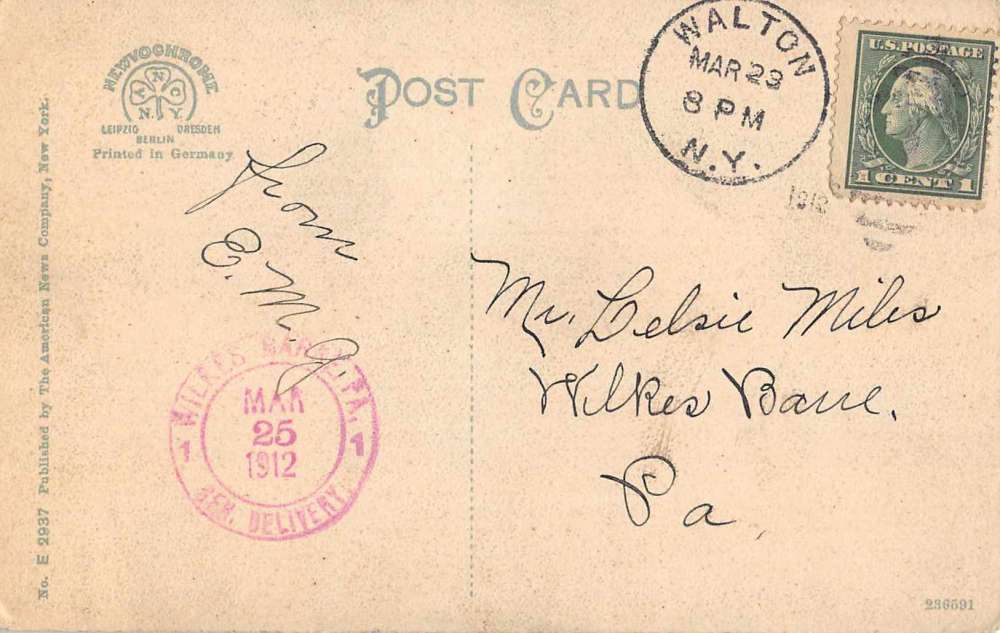 NEWVOCHROME
A N C O
N. Y.
LEIPZIG DRESDEN
BERLIN
Printed in Germany
POST CARD
WALTON
MAR 23
8 PM
N.Y.
1912
U.S. POSTAGE
1 CENT 1
from
E. M. G.
Mr. Lelsie Miles
Wilkes Barre.
Pa,
WILKES BARRE, PA,
MAR
25
1912
1 1
GEN. DELIVERY.
No. E 2937 Published by The American News Company, New York.
236591